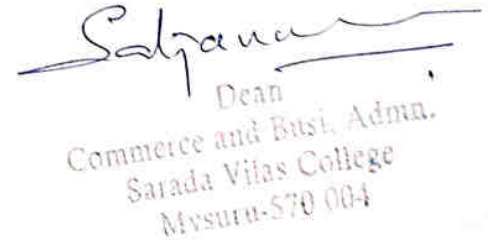 Dean
Commerce and Busi. Admn.
Sarada Vilas College
Mysuru-570 004